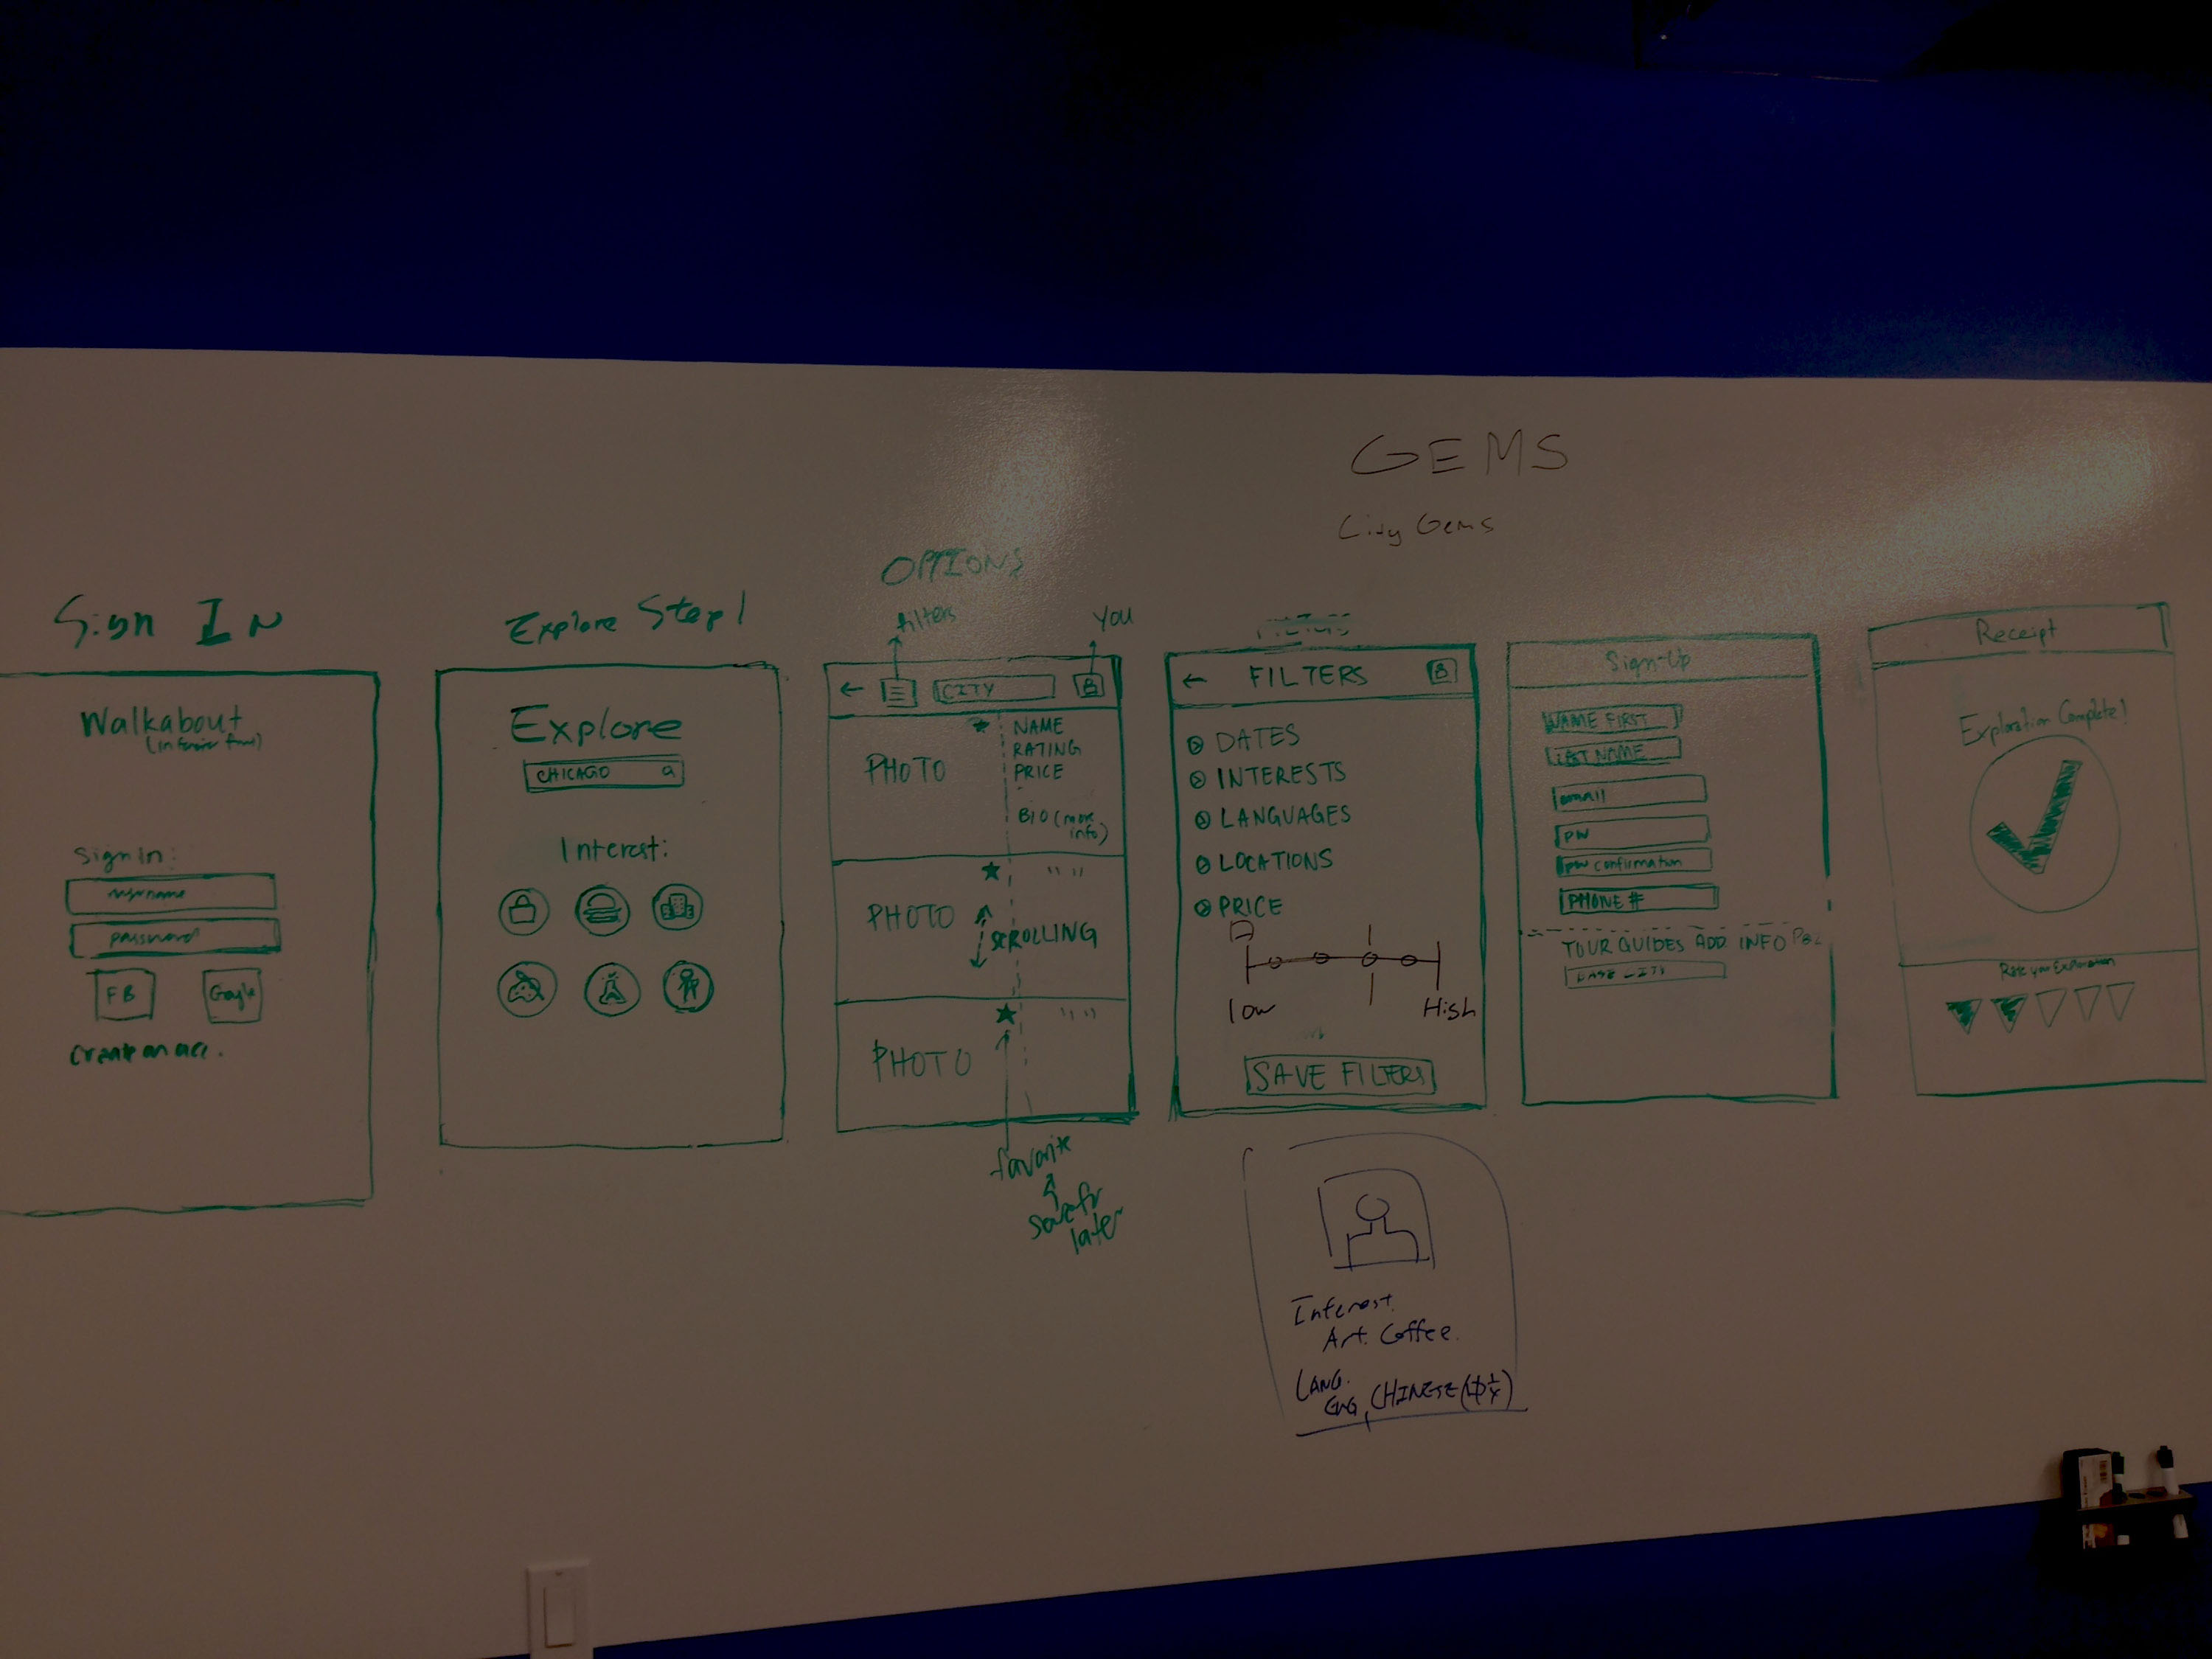 GEMS
City Gems
Sign In
Walkabout
Sign In:
username
password
FB
Google
Create an acc.
Explore Step 1
Explore
CHICAGO
Interest:
OPTIONS
filters
You
CITY
PHOTO
NAME
RATING
PRICE
BIO (more info)
PHOTO
" "
SCROLLING
PHOTO
" "
favorite
save fr
later
FILTERS
FILTERS
DATES
INTERESTS
LANGUAGES
LOCATIONS
PRICE
low
High
SAVE FILTERS
Interest.
Art. Coffee.
LANG.
ENG, CHINESE (中文)
Sign-Up
NAME FIRST
LAST NAME
email
pw
pw confirmation
PHONE #
TOUR GUIDES ADD. INFO
Receipt
Exploration Complete!
Rate your Exploration